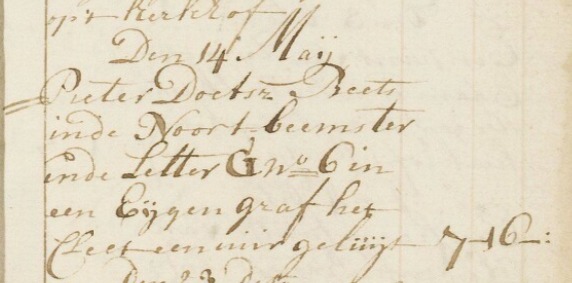 op't kerkhof
Den 14 Maij
Pieter Doetsz Beets
inde Noort beemster
inde Letter G no 6 in
een Eijgen graf het
Cleet een uir geluijt 7-16-:
den 23 dito